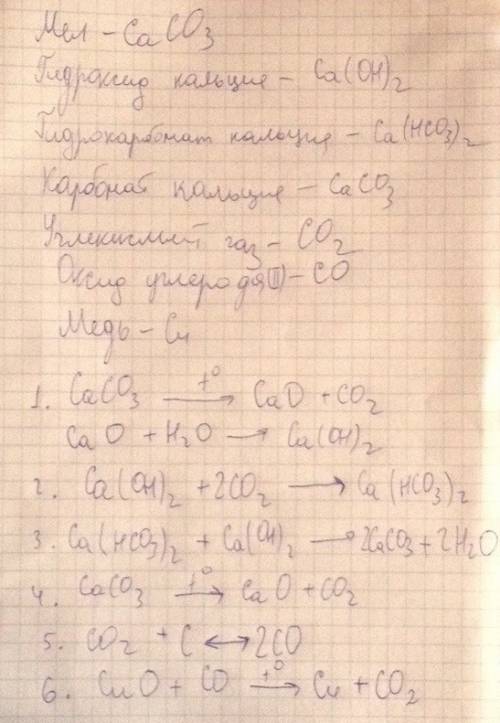 Мел – CaCO₃
Гидроксид кальция – Ca(OH)₂
Гидрокарбонат кальция – Ca(HCO₃)₂
Карбонат кальция – CaCO₃
Углекислый газ – CO₂
Оксид углерода(II) – CO
Медь – Cu
1. CaCO₃ –t°→ CaO + CO₂
CaO + H₂O → Ca(OH)₂
2. Ca(OH)₂ + 2CO₂ → Ca(HCO₃)₂
3. Ca(HCO₃)₂ + Ca(OH)₂ → 2CaCO₃ + 2H₂O
4. CaCO₃ –t°→ CaO + CO₂
5. CO₂ + C ↔ 2CO
6. CuO + CO –t°→ Cu + CO₂